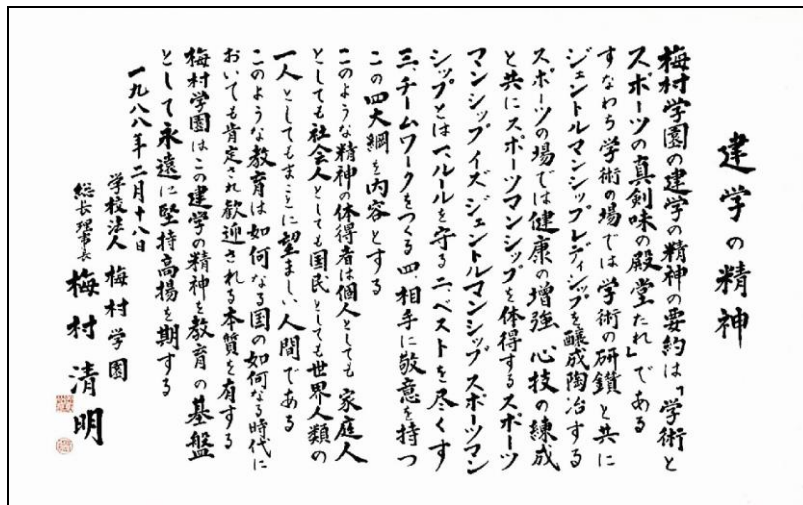 建学の精神
梅村学園の建学の精神の要約は「学術と
スポーツの真剣味の殿堂たれ」である
すなわち学術の場では学術の研鑽と共に
ジェントルマンシップレディシップを醸成陶冶する
スポーツの場では健康の増強 心技の練成
と共にスポーツマンシップを体得するスポーツ
マンシップイズジェントルマンシップスポーツマン
シップとは一、ルールを守る二、ベストを尽くす
三、チームワークをつくる四 相手に敬意を持つ
この四大綱を内容とする
このような精神の体得者は個人としても 家庭人
としても社会人としても国民としても世界人類の
一人としてもまことに望ましい人間である
このような教育は如何なる国の如何なる時代に
おいても肯定され歓迎される本質を有する
梅村学園はこの建学の精神を教育の基盤
として永遠に堅持高揚を期する
一九八八年二月十八日
学校法人 梅村学園
総長理事長 梅村清明